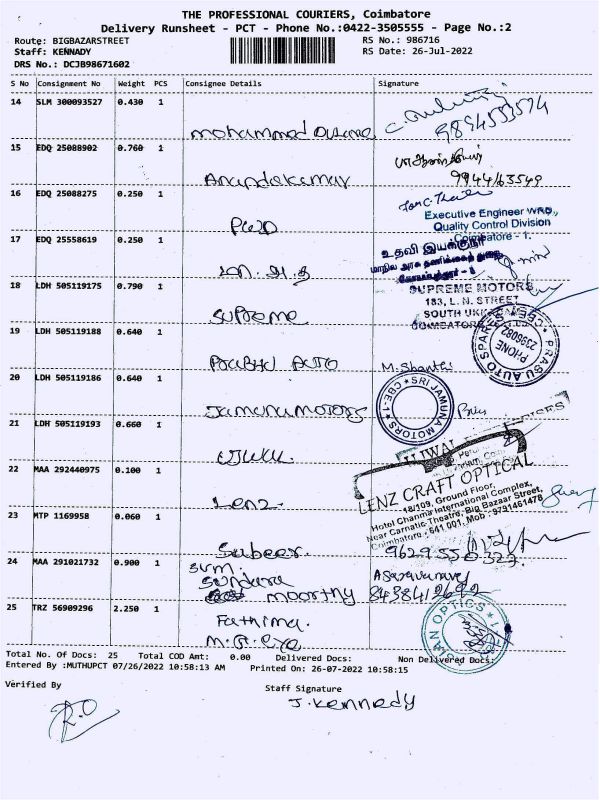 THE PROFESSIONAL COURIERS, Coimbatore
Delivery Runsheet - PCT - Phone No.:0422-3505555 - Page No.:2
Route: BIGBAZARSTREET
RS No.: 986716
Staff: KENNADY
RS Date: 26-Jul-2022
DRS No.: DCJB98671602
S No Consignment No Weight PCS Consignee Details Signature
14 SLM 300093527 0.430 1
mohammed
9894553574
15 EDQ 25088902 0.760 1
Anandakumar
9944163549
16 EDQ 25088275 0.250 1
PWD
Executive Engineer WRD.,
Quality Control Division
Coimbatore - 1.
17 EDQ 25558619 0.250 1
உதவி இயக்குநர்
மாநில அரசு தணிக்கைத் துறை
கோயம்புத்தூர் - 1
18 LDH 505119175 0.790 1
Supreme
SUPREME MOTORS
183, L. N. STREET
SOUTH UKKADAM
COIMBATORE
19 LDH 505119188 0.640 1
Prabhu AUTO
M. Shanthi
PRABU AUTO SPARES
PHONE
2396082
CBE-1
20 LDH 505119186 0.640 1
Jamuna motors
SRI JAMUNA MOTORS
CBE-1
21 LDH 505119193 0.660 1
22 MAA 292440975 0.100 1
Lenz
LENZ CRAFT OPTICAL
18/109, Ground Floor,
Hotel Channma International Complex,
Near Carnatic Theatre, Big Bazaar Street,
Coimbatore - 641 001. Mob : 9791461478
23 MTP 1169958 0.060 1
Sabeer.
9629550322
24 MAA 291021732 0.900 1
Svm.
Sundara
moorthy
A Saravanavel
8438412692
25 TRZ 56909296 2.250 1
Fathima.
M.R. eye
OPTICS
Total No. Of Docs: 25 Total COD Amt: 0.00 Delivered Docs: Non Delivered Docs:
Entered By :MUTHUPCT 07/26/2022 10:58:13 AM Printed On: 26-07-2022 10:58:15
Verified By
Staff Signature
J. Kennedy